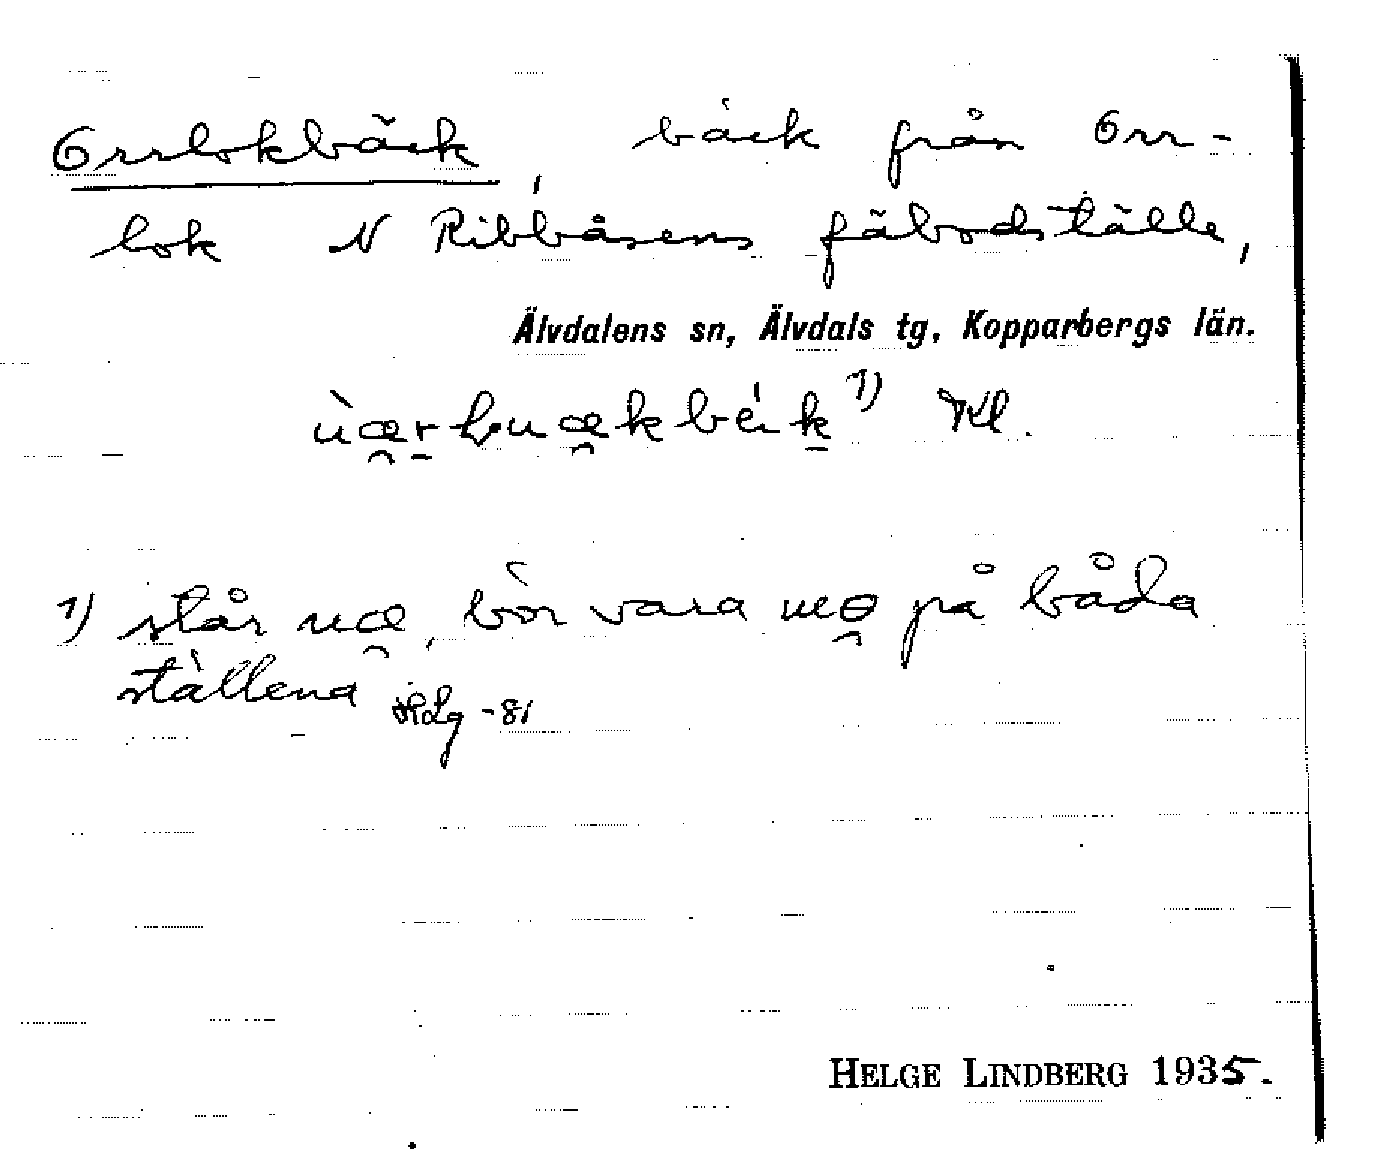 Orrlokbäck, bäck från Orr-
lok N Ribbåsens fäbodställe,
Älvdalens sn, Älvdals tg, Kopparbergs län.
1) Kl.
1) står uæ̯, bör vara uo̯ på båda
ställena HLg -81
HELGE LINDBERG 1935.